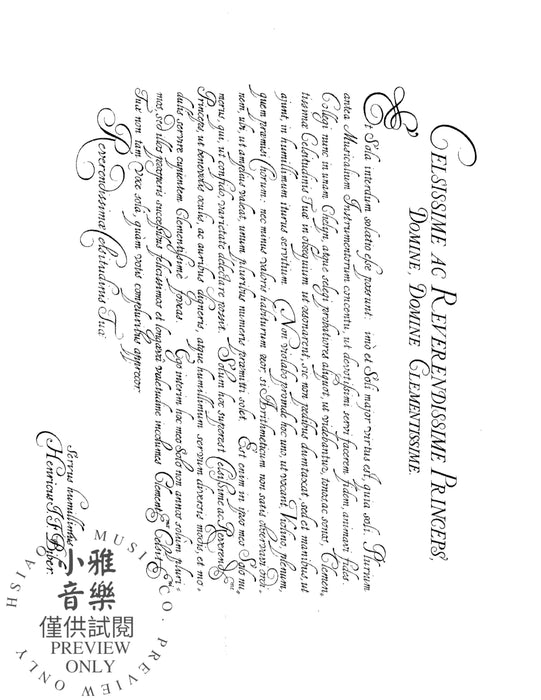 CELSISSIME AC REVERENDISSIME PRINCEPS,
DOMINE, DOMINE CLEMENTISSIME.
Et Sola interdum solatio esse possunt: imò et Soli major virtus est, quia soli. Plurium
antea Musicalium Instrumentorum concentu, ut devotissimi servi facerem fidem, animavi fides.
Collegi nunc in unam Chelyn, atque selegi probatiores aliquot, ut videbantur, tonos ac sonos, Clemen,
tissimæ Celsitudinis Tuæ in obsequium ut resonarent, sic non pedibus duntaxat, sed et manibus, ut
ajunt, in humillimum iturus servitium. Non violabo proinde hoc uno, ut vocant, Violino, plenum,
quem præmisi chorum: nec minus valoris habiturum reor, si Arithmeticum non satis observem ordi,
nem, ubi, ut amplius valeat, unum pluribus numeris præmitti solet. Est enim in ipso meo Solo nu,
merus, qui, uti confido, varietate delectare possit. Solum hoc superest Celsissime ac Reverend.me
Princeps, ut benevolis oculis, ac auribus digneris, atque humillimum servum diversis modis, et mo,
dulis servire cupientem Clementissimè foveas. Ego interim hoc meo Solo non annos solum pluri,
mos, sed illos prosperis successibus felicissimos et longæva valetudine incolumes Clement.mæ Celsit.ni
Tuæ non tam voce sola, quàm votis compluribus apprecor
Reverendissimæ Celsitudinis Tuæ
Servus humillimus
Henricus I: F: Biber.
小雅
音樂
僅供試閱
PREVIEW
ONLY
HSIAO YA MUSIC CO. PREVIEW ONLY